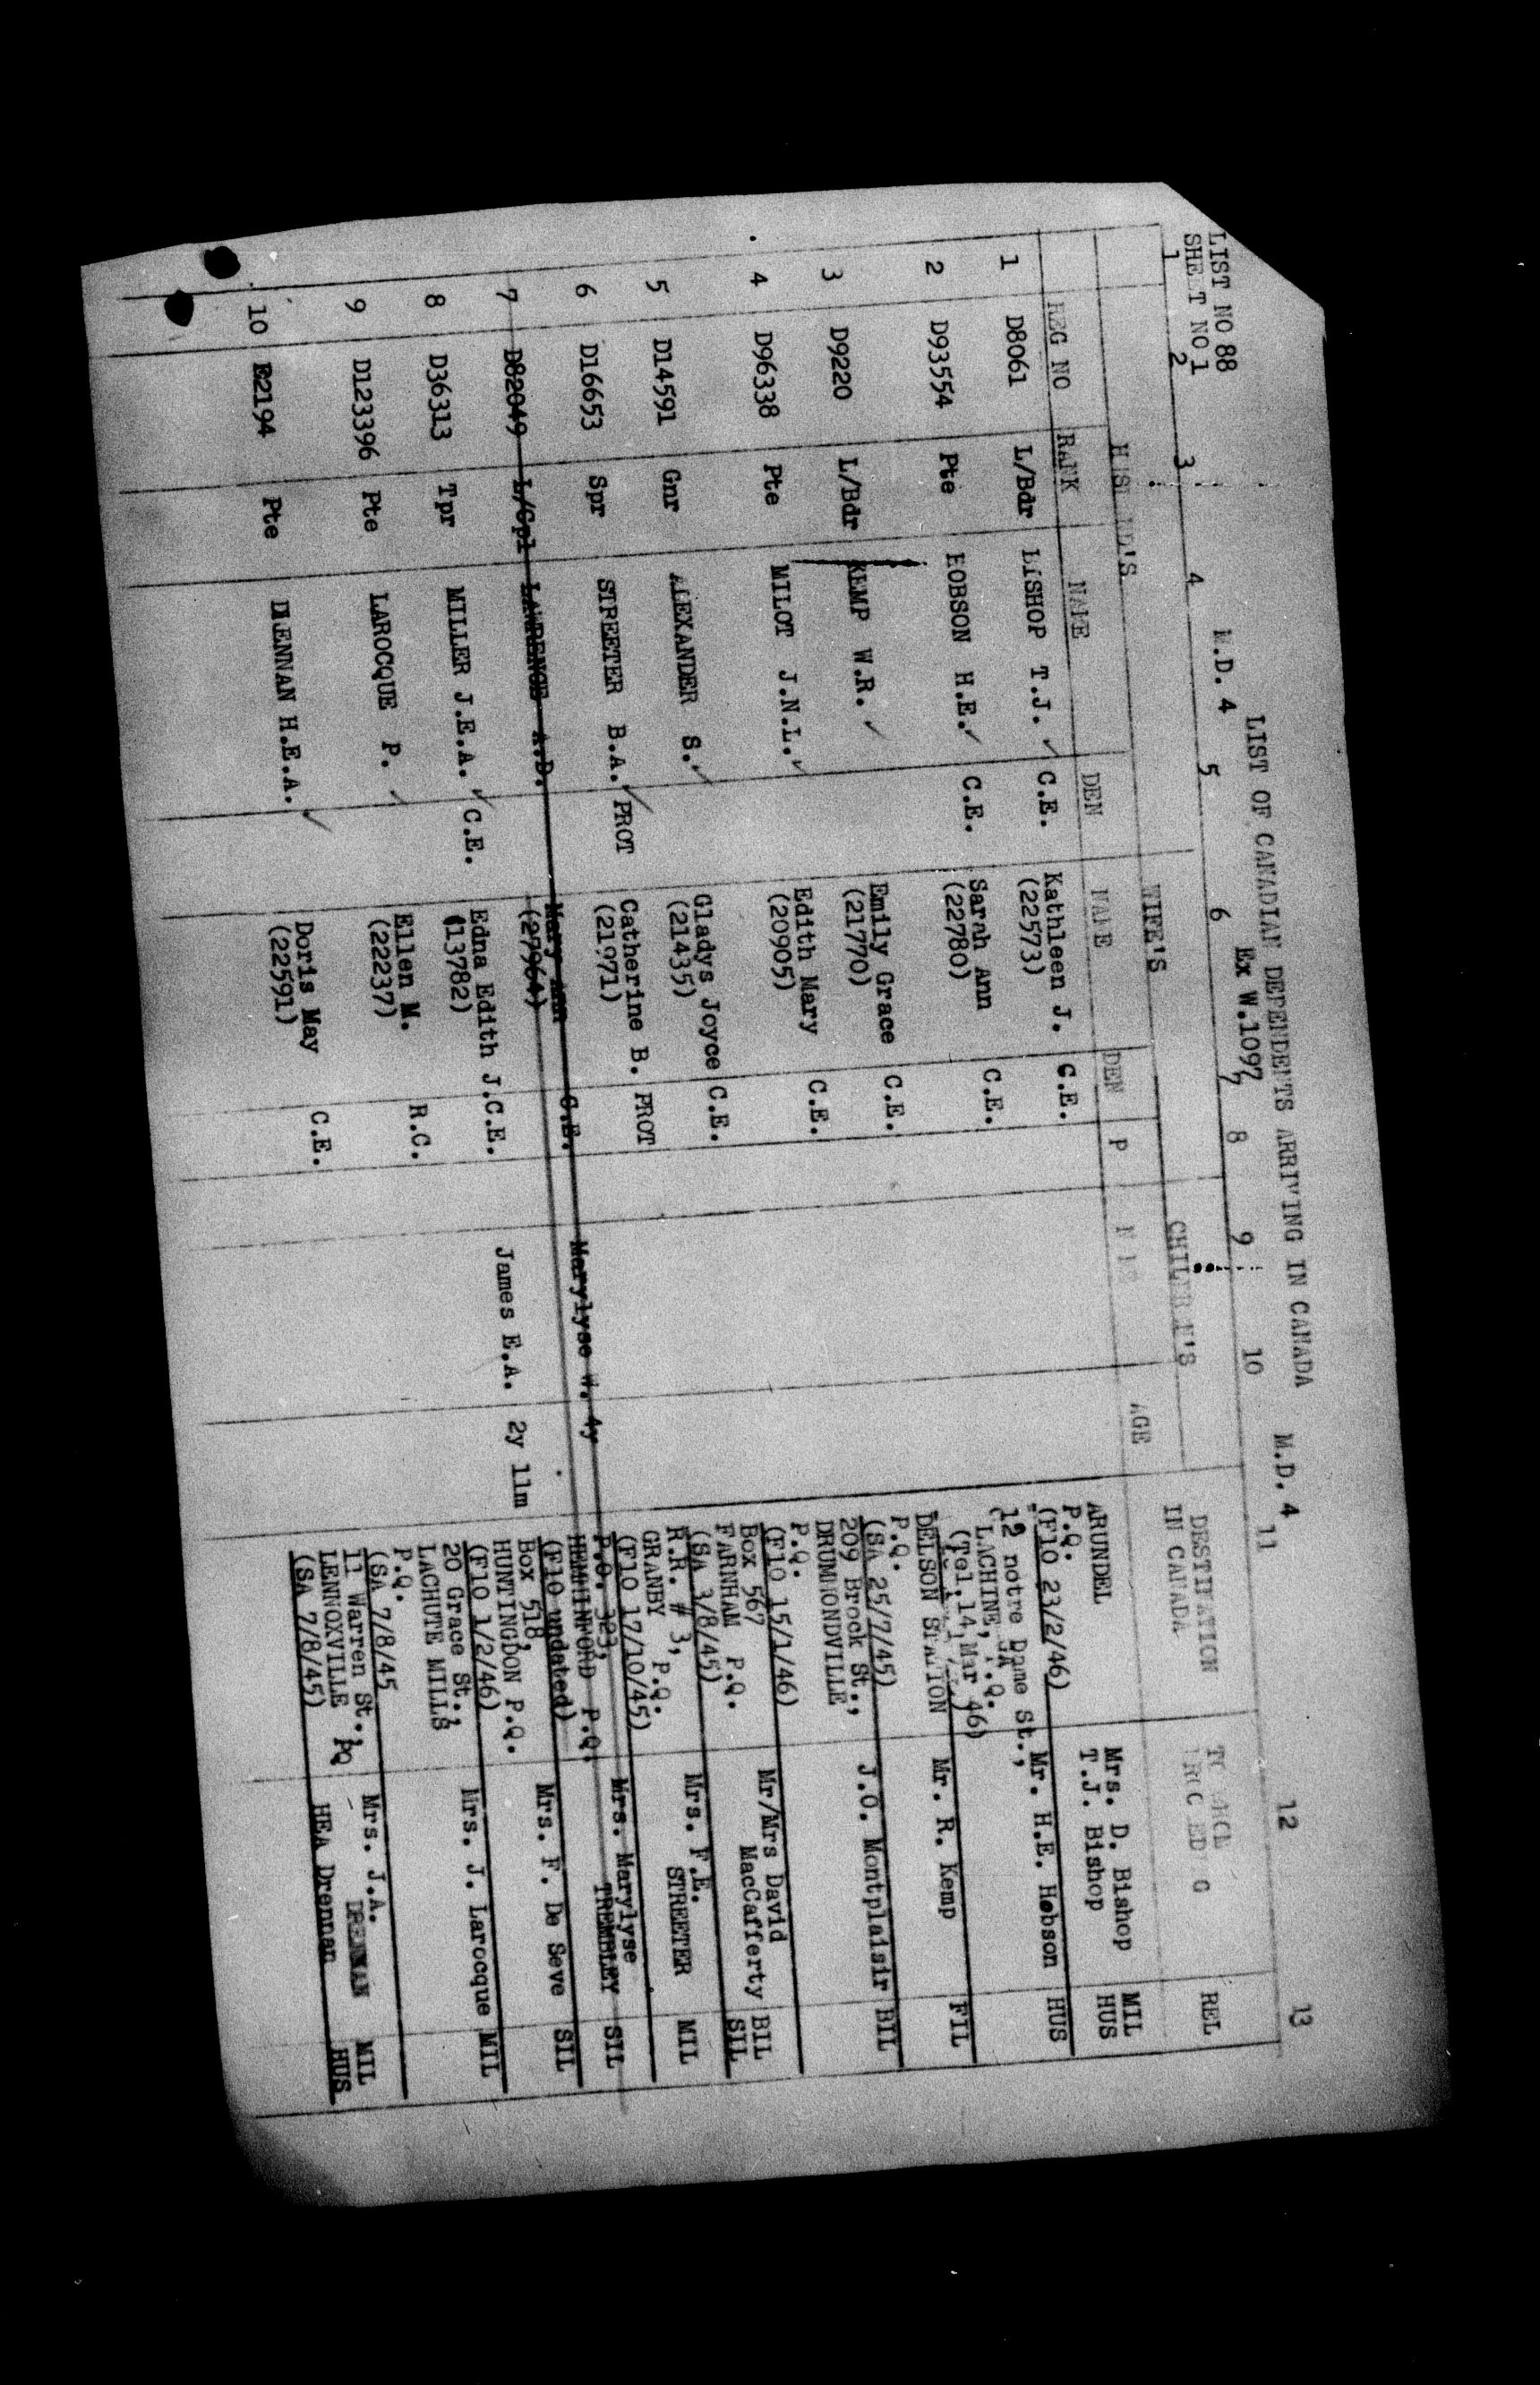 LIST OF CANADIAN DEPENDENTS ARRIVING IN CANADA M.D. 4
LIST NO 88 M.D. 4 Ex W.1097
SHE T NO 1
1 2 3 4 5 6 7 8 9 10 11 12 13
WIFE'S DESTINATION REL
REG NO RANK NAME DEN NAME DEN P AGE IN CANADA
1 D8061 L/Bdr BISHOP T.J. ✓ C.E. Kathleen J. C.E. ARUNDEL Mrs. D. Bishop MIL
(22573) P.Q. T.J. Bishop HUS
(F10 23/2/46)
2 D93554 Pte HOBSON H.E. ✓ C.E. Sarah Ann C.E. 12 notre Dame St., Mr. H.E. Hobson HUS
(22780) LACHINE, P.Q.
(Tel.14 Mar 46)
3 D9220 L/Bdr KEMP W.R. ✓ Emily Grace C.E. DELSON STATION Mr. R. Kemp FIL
(21770) P.Q.
(SA 25/7/45)
4 D96338 Pte MILOT J.N.L. ✓ Edith Mary C.E. 209 Brock St., J.O. Montplaisir BIL
(20905) DRUMMONDVILLE
P.Q.
(F10 15/1/46)
5 D14591 Gnr ALEXANDER S. ✓ Gladys Joyce C.E. Box 567 Mr/Mrs David BIL
(21435) FARNHAM P.Q. MacCafferty SIL
(SA 3/8/45)
6 D16653 Spr STREETER B.A. ✓ PROT Catherine B. PROT R.R. # 3, Mrs. F.E. MIL
(21971) GRANBY P.Q. STREETER
(F10 17/10/45)
7 D82049 L/Cpl LAWRENCE A.D. Mary Ann C.E. Marylyse W. 4y P.O. 323, Mrs. Marylyse SIL
(27964) HEMMINFORD P.Q. TREMBLEY
(F10 undated)
8 D36313 Tpr MILLER J.E.A. ✓ C.E. Edna Edith J. C.E. James E.A. 2y 11m Box 518, Mrs. F. De Seve SIL
(13782) HUNTINGDON P.Q.
(F10 1/2/46)
9 D123396 Pte LAROCQUE P. ✓ Ellen M. R.C. 20 Grace St., Mrs. J. Larocque MIL
(22237) LACHUTE MILLS
P.Q.
(SA 7/8/45
10 E2194 Pte DRENNAN H.E.A. ✓ Doris May C.E. 11 Warren St., Mrs. J.A. DRENNAN MIL
(22591) LENNOXVILLE PQ HEA Drennan HUS
(SA 7/8/45)